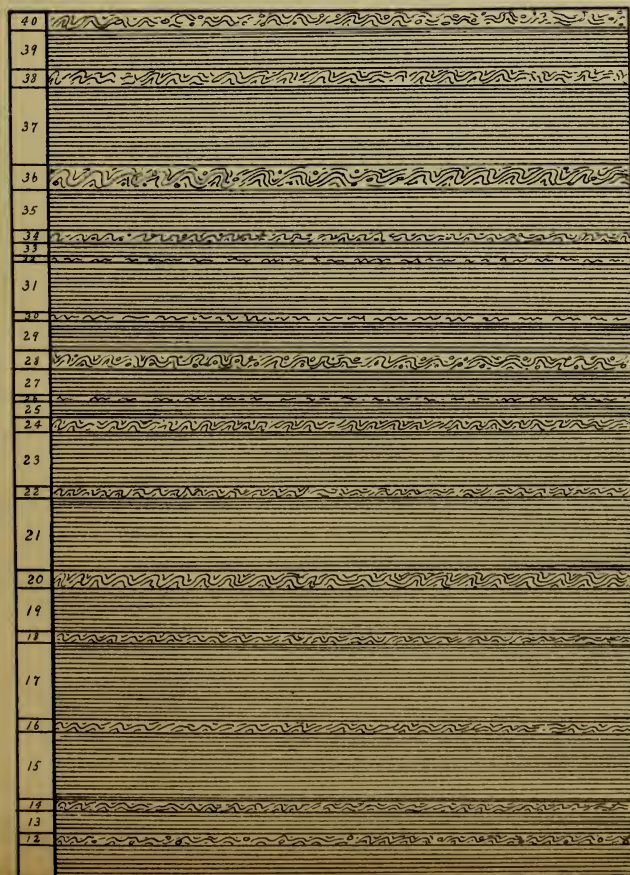 40
39
38
37
36
35
34
33
32
31
30
29
28
27
26
25
24
23
22
21
20
19
18
17
16
15
14
13
12